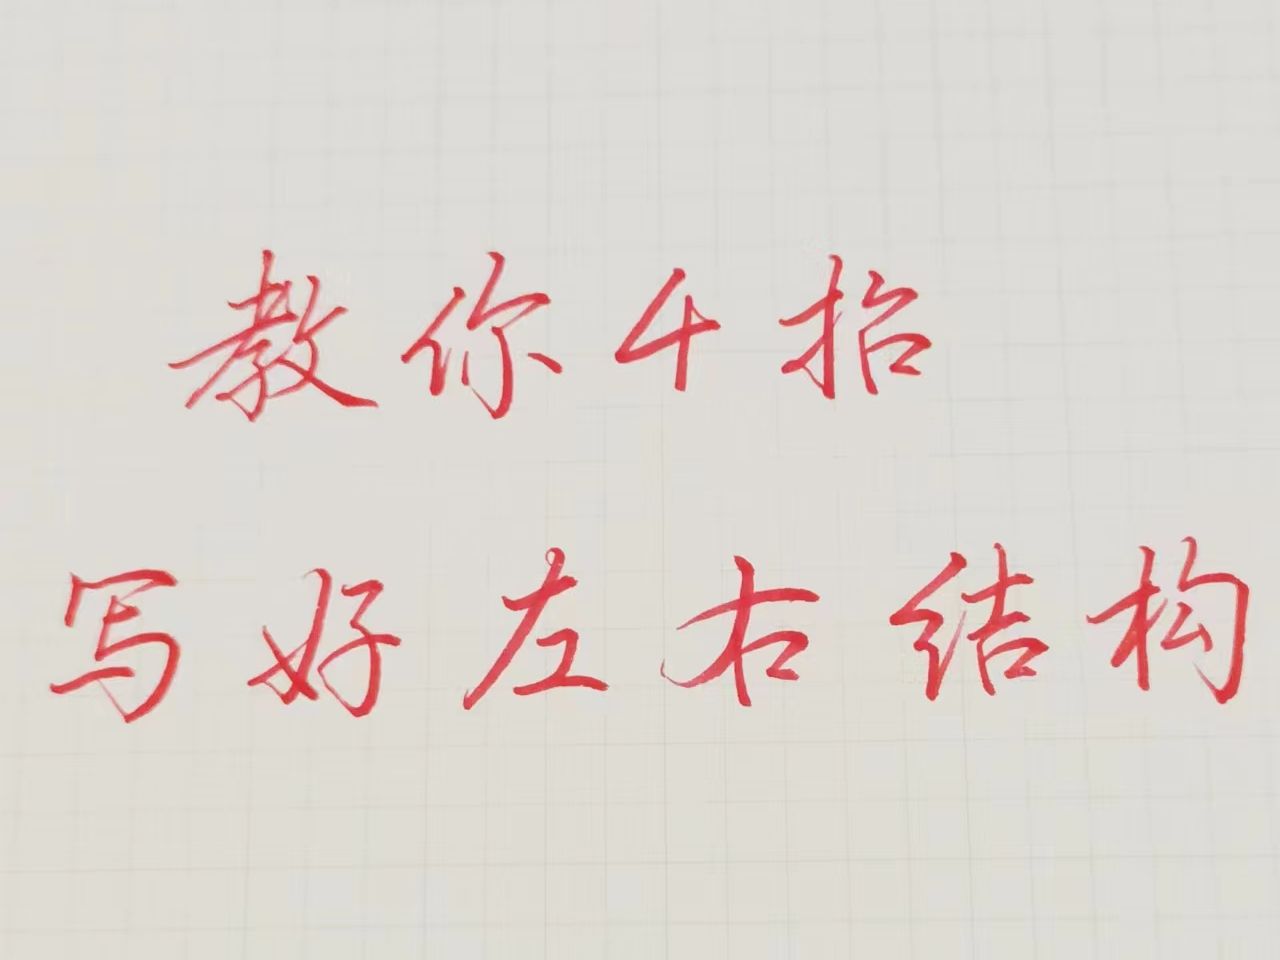 教你4招
写好左右结构